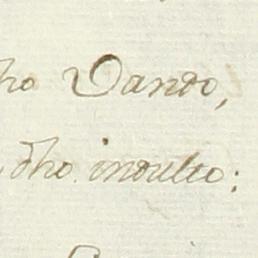 ho Dando,
dho indulto: